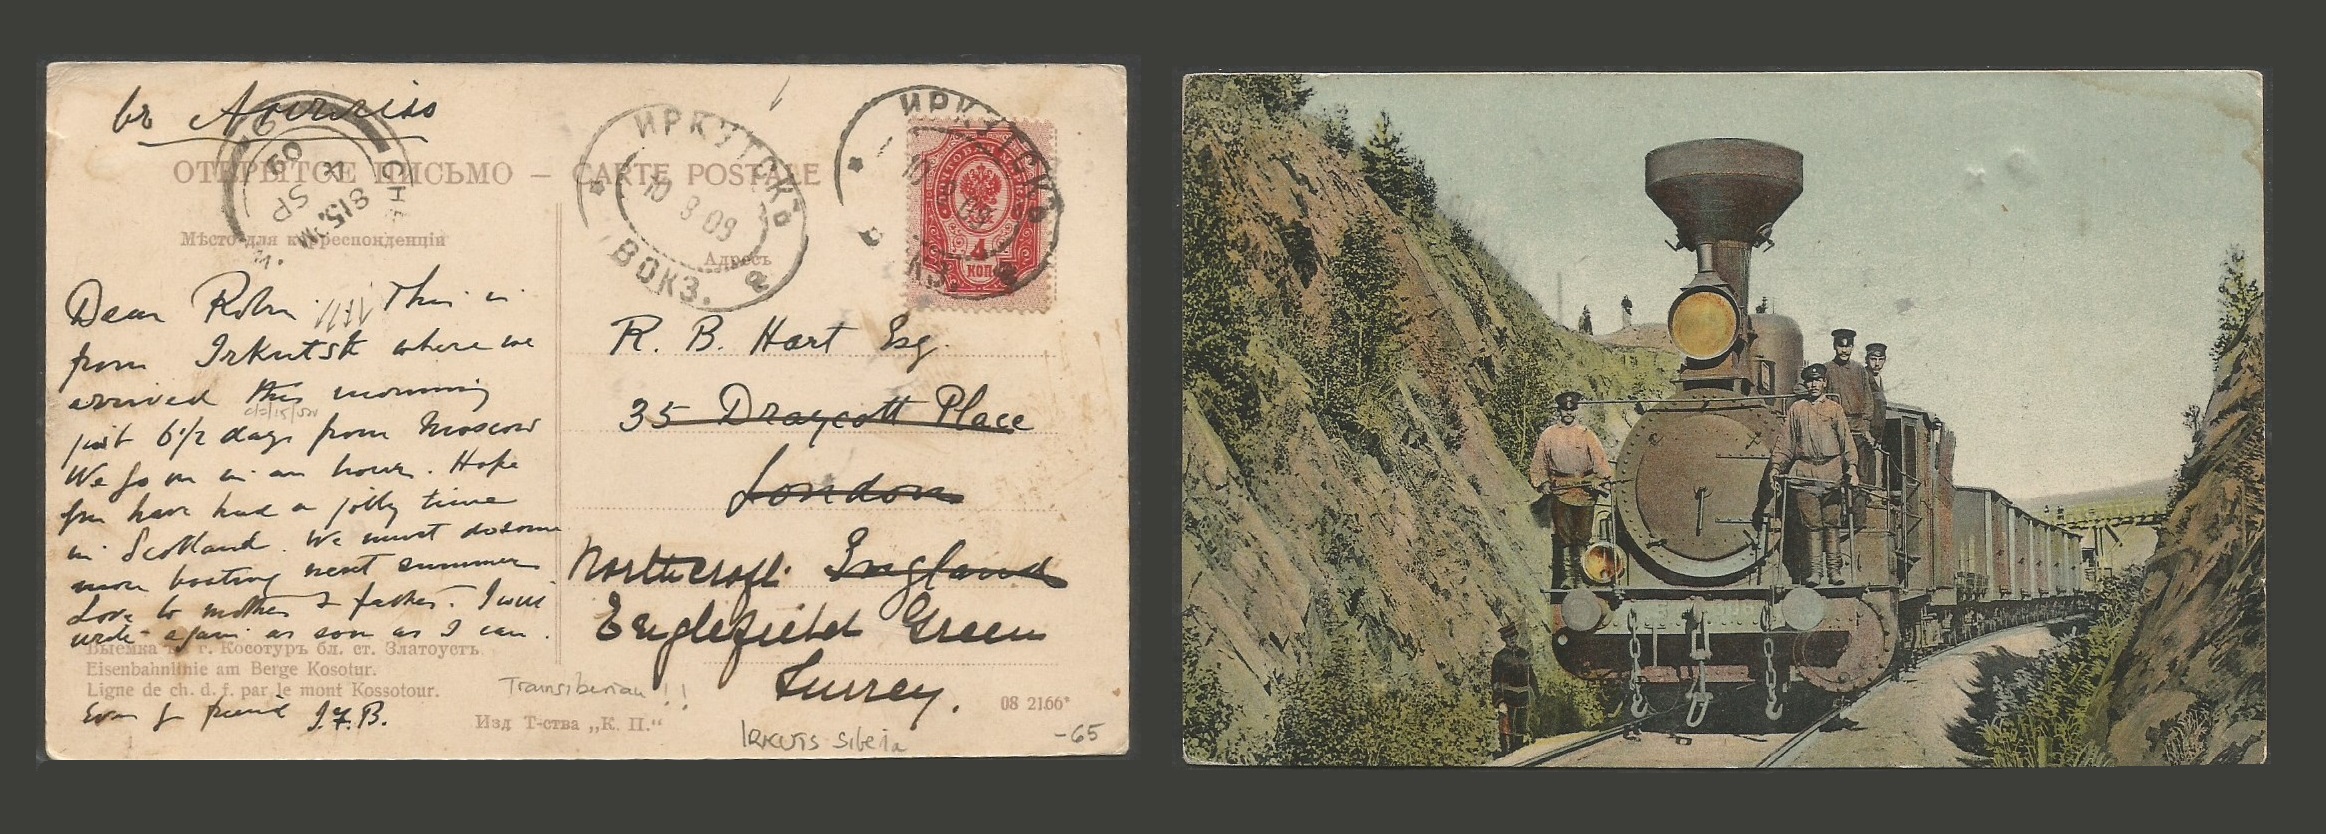 ОТКРЫТОЕ ПИСЬМО – CARTE POSTALE
Мѣсто для корреспонденціи
Адресъ
ИРКУТСКЪ
10 8 09
ВОКЗ.
2
ИРКУТСКЪ
10
09
КЗ.
4
КОП
CHE
815. M
7
SP
09
Dear Robin. This is
from Irkutsk where we
arrived this morning
just 6 1/2 days from Moscow
We go on in an hour. Hope
you have had a jolly time
in Scotland. We must do some
more boating next summer
Love to mother & father. I will
write again as soon as I can.
Выемка г. Косотуръ бл. ст. Златоустъ.
Eisenbahnlinie am Berge Kosotur.
Ligne de ch. d. f. par le mont Kossotour.
friend J.F.B.
Изд Т-ства „К. П.“
08 2166*
R. B. Hart Esq.
35 Draycott Place
London
England
Northcroft
Englefield Green
Surrey.
Transiberian!!
IRKUTS Siberia
-65